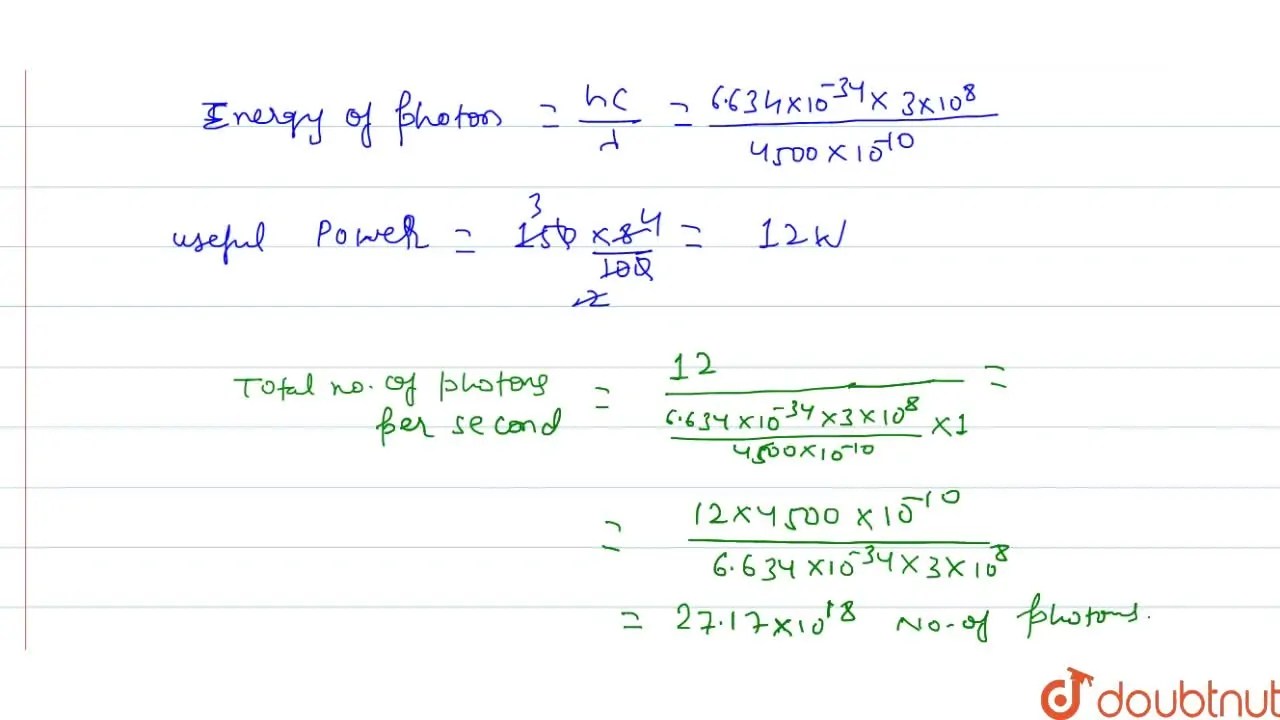 Energy of photon = hc/λ = 6.634×10⁻³⁴ × 3×10⁸ / 4500×10⁻¹⁰
useful Power = 150 × 8/100 = 12W
3 4
2
Total no. of photons per second = 12 / (6.634×10⁻³⁴×3×10⁸ / 4500×10⁻¹⁰ ×1) =
= 12×4500×10⁻¹⁰ / 6.634×10⁻³⁴×3×10⁸
= 27.17×10¹⁸ No. of photons.
doubtnut